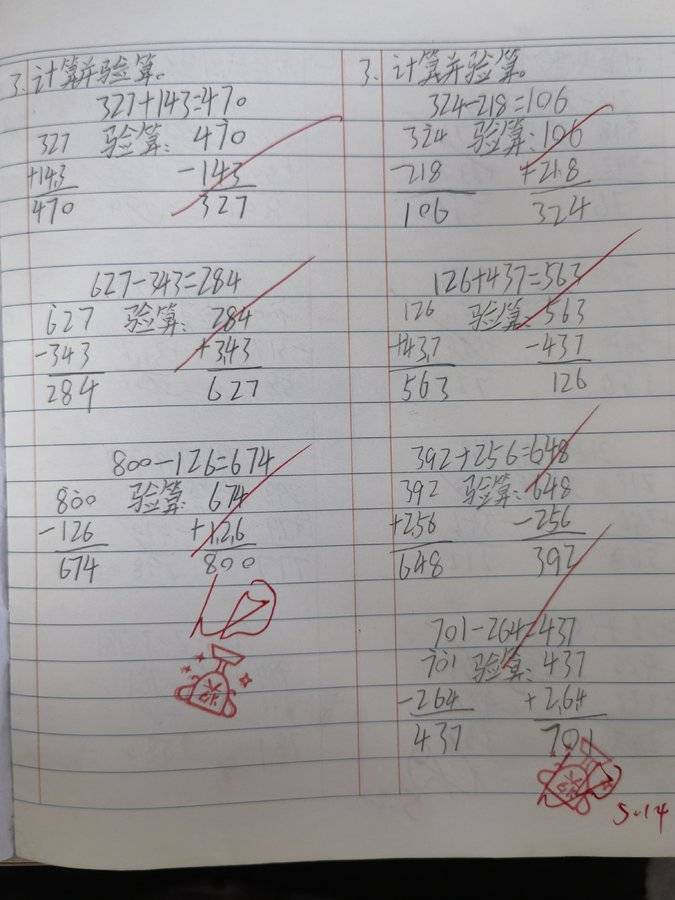 3、计算并验算。
327+143=470
327 验算: 470
+143 -143
470 327
627-343=284
627 验算: 284
-343 +343
284 627
800-126=674
800 验算: 674
-126 +126
674 800
3、计算并验算。
324-218=106
324 验算: 106
-218 +218
106 324
126+437=563
126 验算: 563
+437 -437
563 126
392+256=648
392 验算: 648
+256 -256
648 392
701-264=437
701 验算: 437
-264 +264
437 701
5.14